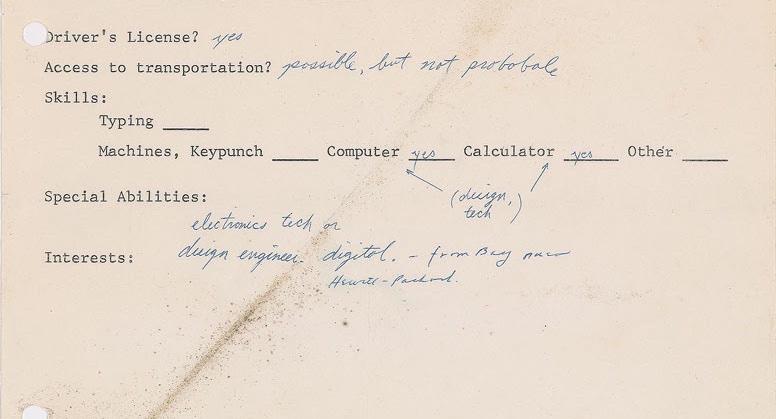 Driver's License? yes
Access to transportation? possible, but not probobale
Skills:
Typing ____
Machines, Keypunch ____ Computer yes Calculator yes Other ____
(design,
tech)
Special Abilities:
electronics tech or
Interests: design engineer. digital. - from Bay near
Hewitt-Packard.